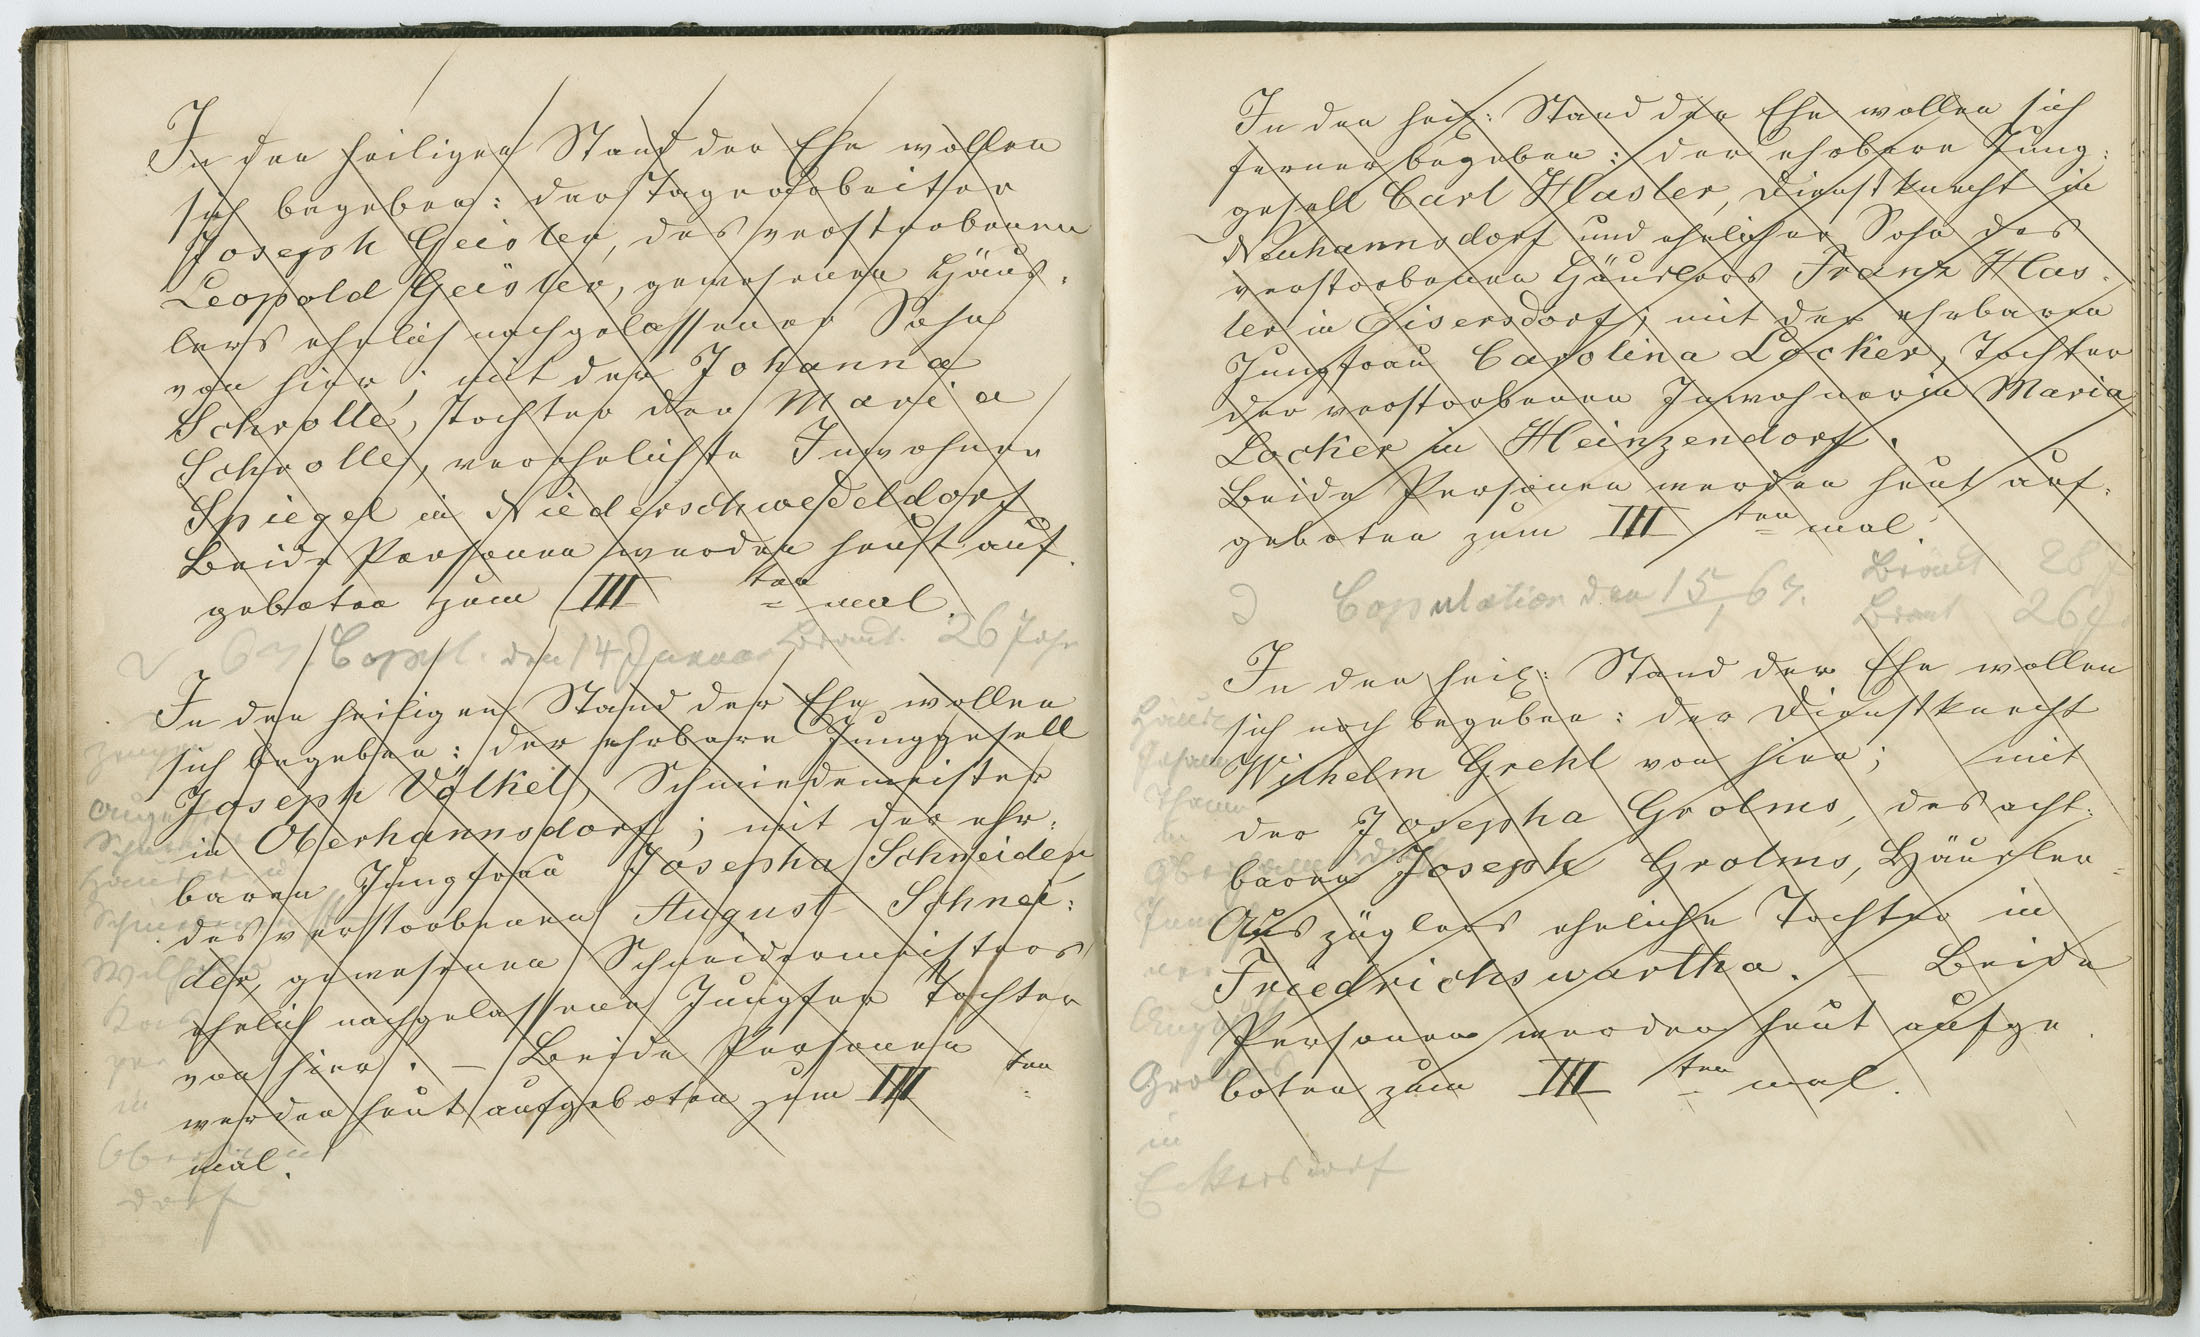 In den heiligen Stand der Ehe wollen
sich begeben: der Tagearbeiter
Joseph Geisler, des verstorbenen
Leopold Geisler, gewesenen Häus-
lers ehelich nachgelassener Sohn
von hier; mit der Johanna
Schrolle, Tochter der Maria
Schrolle, verehelichte Inwohner
Spiegel in Niederschwedeldorf
Beide Personen werden heut auf-
geboten zum III ten mal.
67. Copul. den 14 Januar Braut. 26 Jahr
In den heiligen Stand der Ehe wollen
sich begeben: der ehrbare Junggesell
Joseph Völkel, Schmiedemeister
in Oberhannsdorf; mit der ehr-
baren Jungfrau Josepha Schneider
des verstorbenen August Schnei-
der, gewesenen Schneidermeisters
ehelich nachgelassene Jungfer Tochter
von hier. – Beide Personen
werden heut aufgeboten zum III ten
mal.
Zeugen
August
Wilhelm
in
dorf
In den heil: Stand der Ehe wollen sich
ferner begeben: der ehrbare Jung-
gesell Carl Hasler, Dienstknecht in
Neuhannsdorf und ehelicher Sohn des
verstorbenen Häuslers Franz Has-
ler in Eisersdorf; mit der ehrbaren
Jungfrau Carolina Locker, Tochter
der verstorbenen Inwohnerin Maria
Locker in Heinzendorf.
Beide Personen werden heut auf-
geboten zum III ten mal.
Copulation den 15/1 67. Bräut 28 J
Braut 26 J.
In den heil: Stand der Ehe wollen
sich noch begeben: der Dienstknecht
Wilhelm Grehl von hier; mit
der Josepha Grolms, des acht-
baren Joseph Grolms, Häusler-
Auszüglers eheliche Tochter in
Friedrichswartha. – Beide
Personen werden heut aufge-
boten zum III ten mal.
Johann
in
August
Grolms
in
Eckersdorf